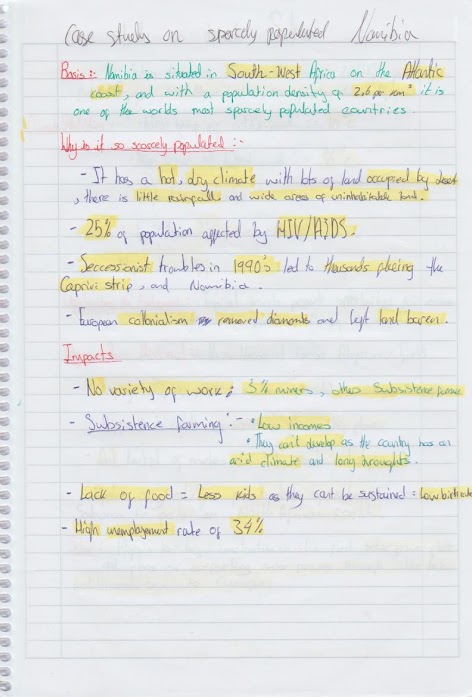 Case study on sparcely populated Namibia
Basis:- Namibia is situated in South-West Africa on the Atlantic
coast, and with a population density of 2.6 per km² it is
one of the worlds most sparcely populated countries.
Why is it so scarcely populated:-
- It has a hot, dry climate with lots of land occupied by desert
, there is little rainfall and wide areas of uninhabitable land.
- 25% of population affected by HIV/AIDS.
- Seccessionist troubles in 1990's led to thousands fleeing the
Caprivi strip, and Namibia.
- European collonialism removed diamonds and left land baren.
Impacts
- No variety of work: 3% miners, others Subsistence farmer
- Subsistence farming:- • Low incomes
• They can't develop as the country has an
arid climate and long droughts.
- Lack of food = Less kids as they cant be sustained = low birth rate
- High unemployment rate of 34%